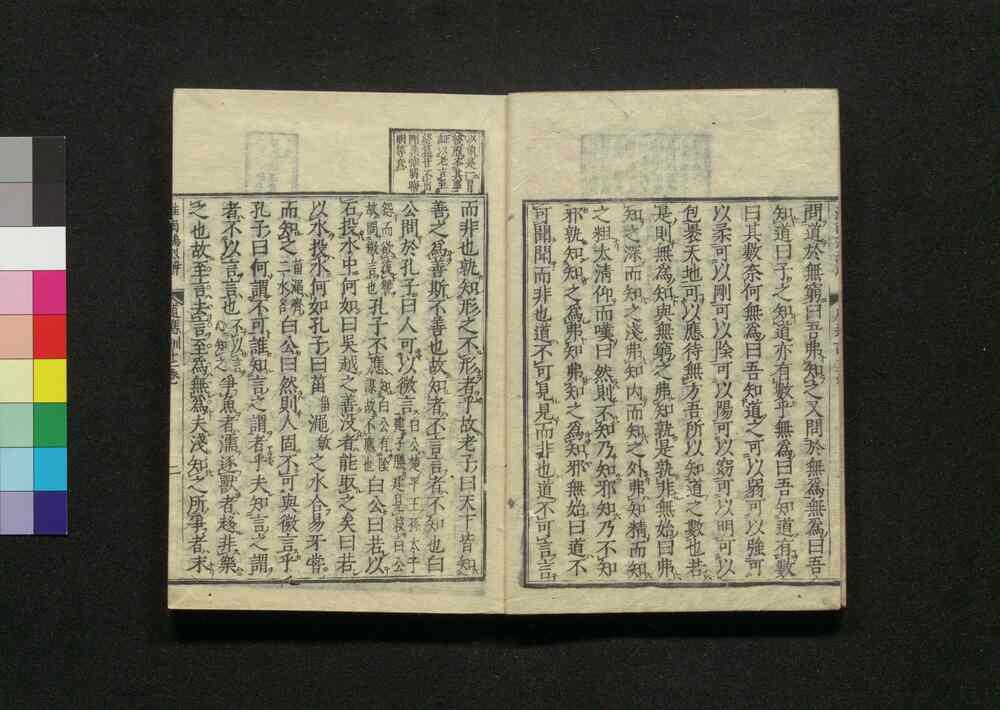 問道於無窮曰吾弗知之又問於無爲無爲曰吾
知道曰子之知道亦有數乎無爲曰吾知道有數
曰其數奈何無爲曰吾知道之可以弱可以強可
以柔可以剛可以陰可以陽可以窈可以明可以
包裹天地可以應待無方吾所以知道之數也若
是則無爲知與無窮之弗知孰是孰非無始曰弗
知之深而知之淺弗知内而知之外弗知精而知
之粗太清仰而嘆曰然則不知乃知邪知乃不知
邪孰知知之爲弗知弗知之爲知邪無始曰道不
可聞聞而非也道不可見見而非也道不可言言
而非也孰知形之不形者乎故老子曰天下皆知
善之爲善斯不善也故知者不言言者不知也白
公問於孔子曰人可以微言白公楚平王孫太子建子勝建見殺白公
怨而欲復讐故問微言也孔子不應知白公有陰謀故不應也白公曰若以
石投水中何如曰吳越之善没者能取之矣曰若
以水投水何如孔子曰菑澠之水合易牙嘗
而知之菑澠齊二水名白公曰然則人固不可與微言乎
孔子曰何謂不可誰知言之謂者乎夫知言之謂
者不以言言也不以言心知之爭魚者濡逐獸者趍非樂
之也故至言去言至爲無爲夫淺知之所爭者末
道應訓
二